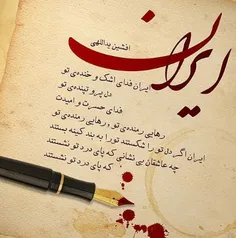 ایران
افشین یداللهی
ایران فدای اشک و خنده‌ی تو
دل پر و تپنده‌ی تو
فدای حسرت و امیدت
رهایی رمنده‌ی تو ، رهایی رمنده‌ی تو
ایران اگر دل تو را شکستند تو را به بند کینه بستند
چه عاشقان بی نشانی که پای درد تو نشستند
که پای درد تو نشستند